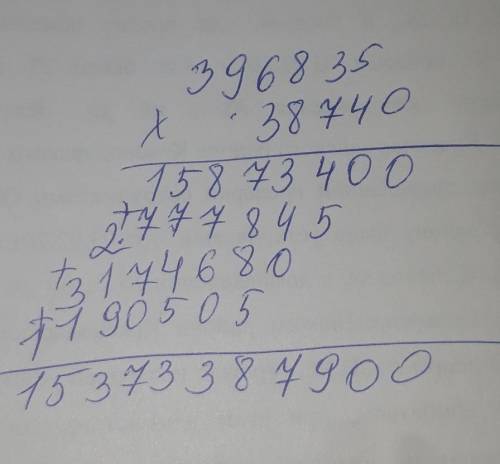 396835
x 38740
15873400
+2777845
+3174680
+1190505
15373387900